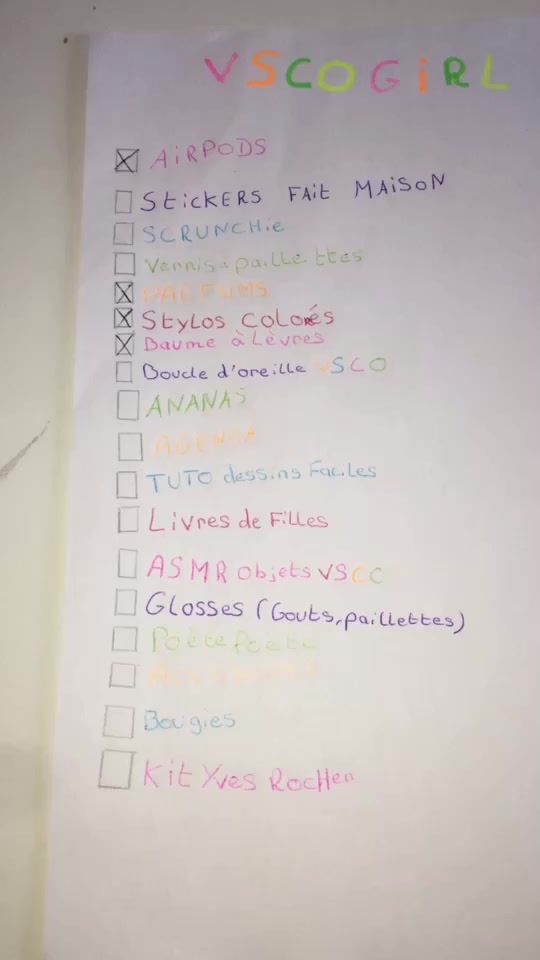 VSCO GiRL
AiRPODS
StickERS FAit MAiSON
SCRUNCHie
Vernis à paillettes
PARFUMS
Stylos Colorés
Baume à Lèvres
Boucle d'oreille VSCO
ANANAS
AGENDA
TUTO dessins Faciles
Livres de Filles
ASMR objets VSCO
Glosses (Gouts, paillettes)
Bougies
Kit Yves RocHer